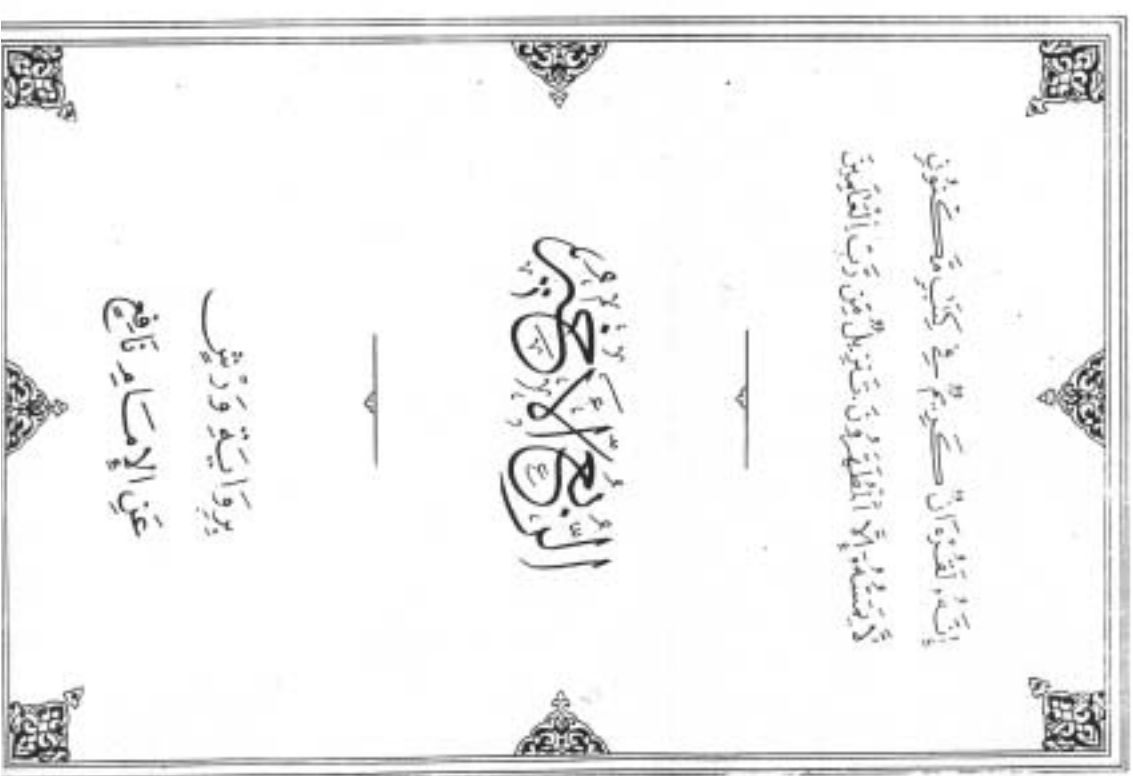 إِنَّهُۥ لَقُرْءَانٌ كَرِيمٌ فِے كِتَٰبٍ مَّكْنُونٍ
لَّا يَمَسُّهُۥٓ إِلَّا اَ۬لْمُطَهَّرُونَ تَنزِيلٌ مِّن رَّبِّ اِ۬لْعَٰلَمِينَ
الرُّبُعُ الأَخِيرُ
بِرِوَايَةِ وَرْشٍ
عَنِ الإِمَامِ نَافِعٍ